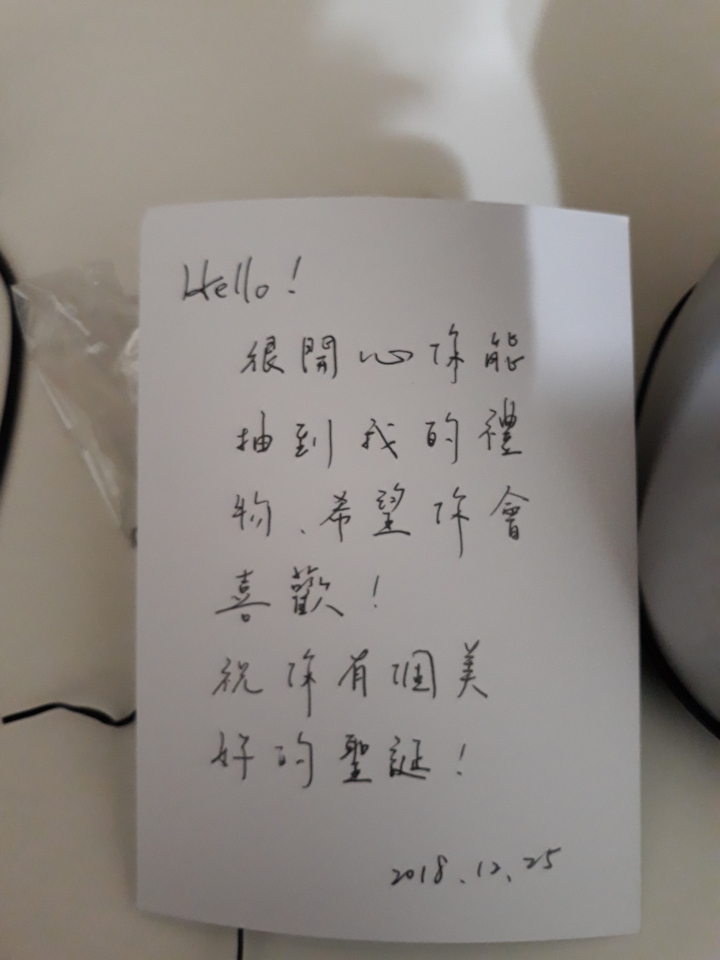 Hello!
很開心你能
抽到我的禮
物、希望你會
喜歡!
祝你有個美
好的聖誕!
2018.12.25